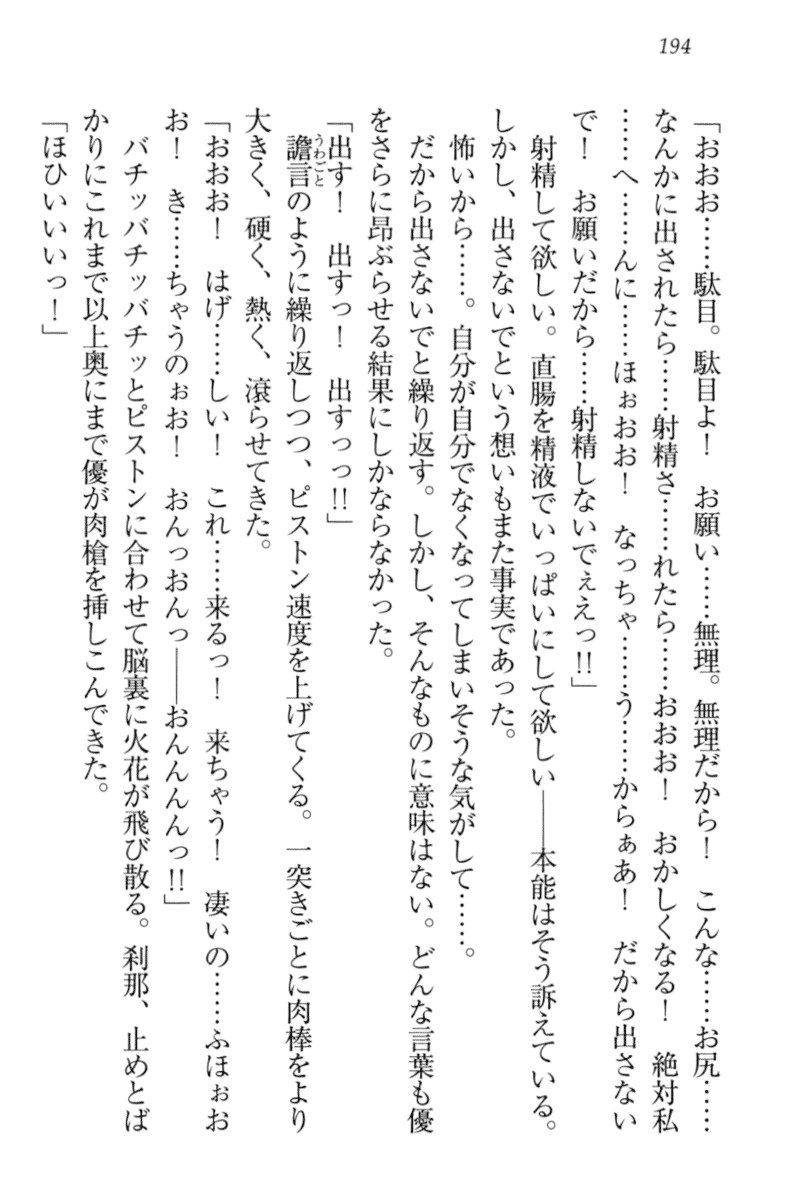 194
「おおお……駄目。駄目よ！　お願い……無理。無理だから！　こんな……お尻……
なんかに出されたら……射精さ……れたら……おおお！　おかしくなる！　絶対私
……へ……んに……ほぉおお！　なっちゃ……う……からぁあ！　だから出さない
で！　お願いだから……射精しないでぇえっ!!」
　射精して欲しい。直腸を精液でいっぱいにして欲しい――本能はそう訴えている。
しかし、出さないでという想いもまた事実であった。
　怖いから……。自分が自分でなくなってしまいそうな気がして……。
　だから出さないでと繰り返す。しかし、そんなものに意味はない。どんな言葉も優
をさらに昂ぶらせる結果にしかならなかった。
「出す！　出すっ！　出すっっ!!」
　譫言うわごとのように繰り返しつつ、ピストン速度を上げてくる。一突きごとに肉棒をより
大きく、硬く、熱く、滾らせてきた。
「おおお！　はげ……しい！　これ……来るっ！　来ちゃう！　凄いの……ふほぉお
お！　き……ちゃうのぉお！　おんっおんっ――おんんんんっ!!」
　バチッバチッバチッとピストンに合わせて脳裏に火花が飛び散る。刹那、止めとば
かりにこれまで以上奥にまで優が肉槍を挿しこんできた。
「ほひいいいっ！」